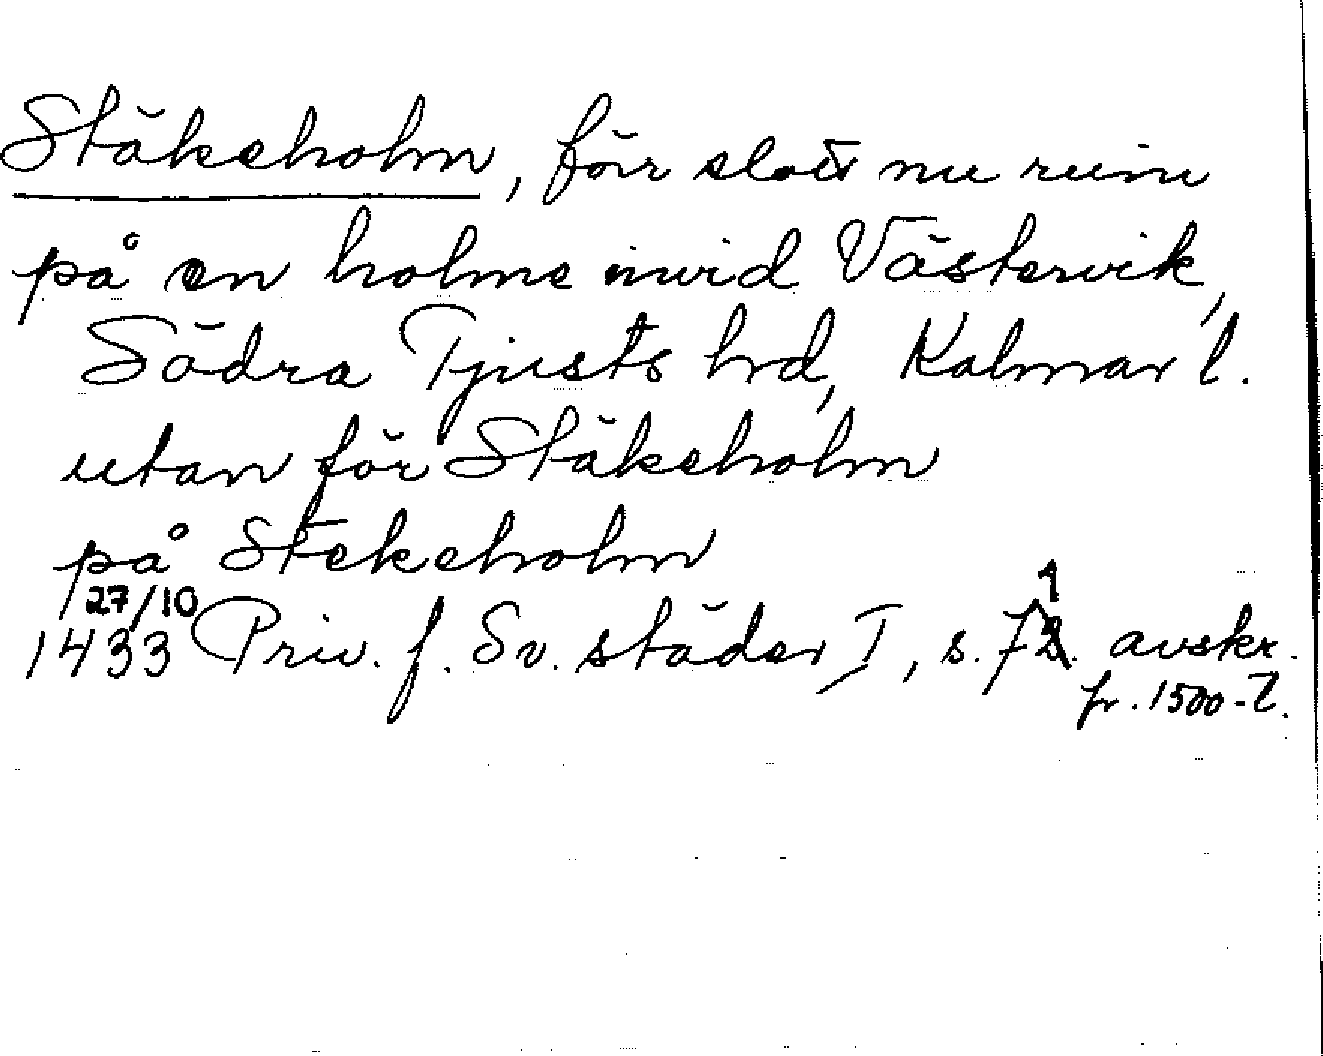 Stäkeholm, förr slott nu ruin
på en holme invid Västervik,
Södra Tjusts hrd, Kalmar l.
utan för Stäkeholm
på Stekeholm
27/10
1433 Priv. f. Sv. städer I, s. 71. avskr.
fr. 1500-t.